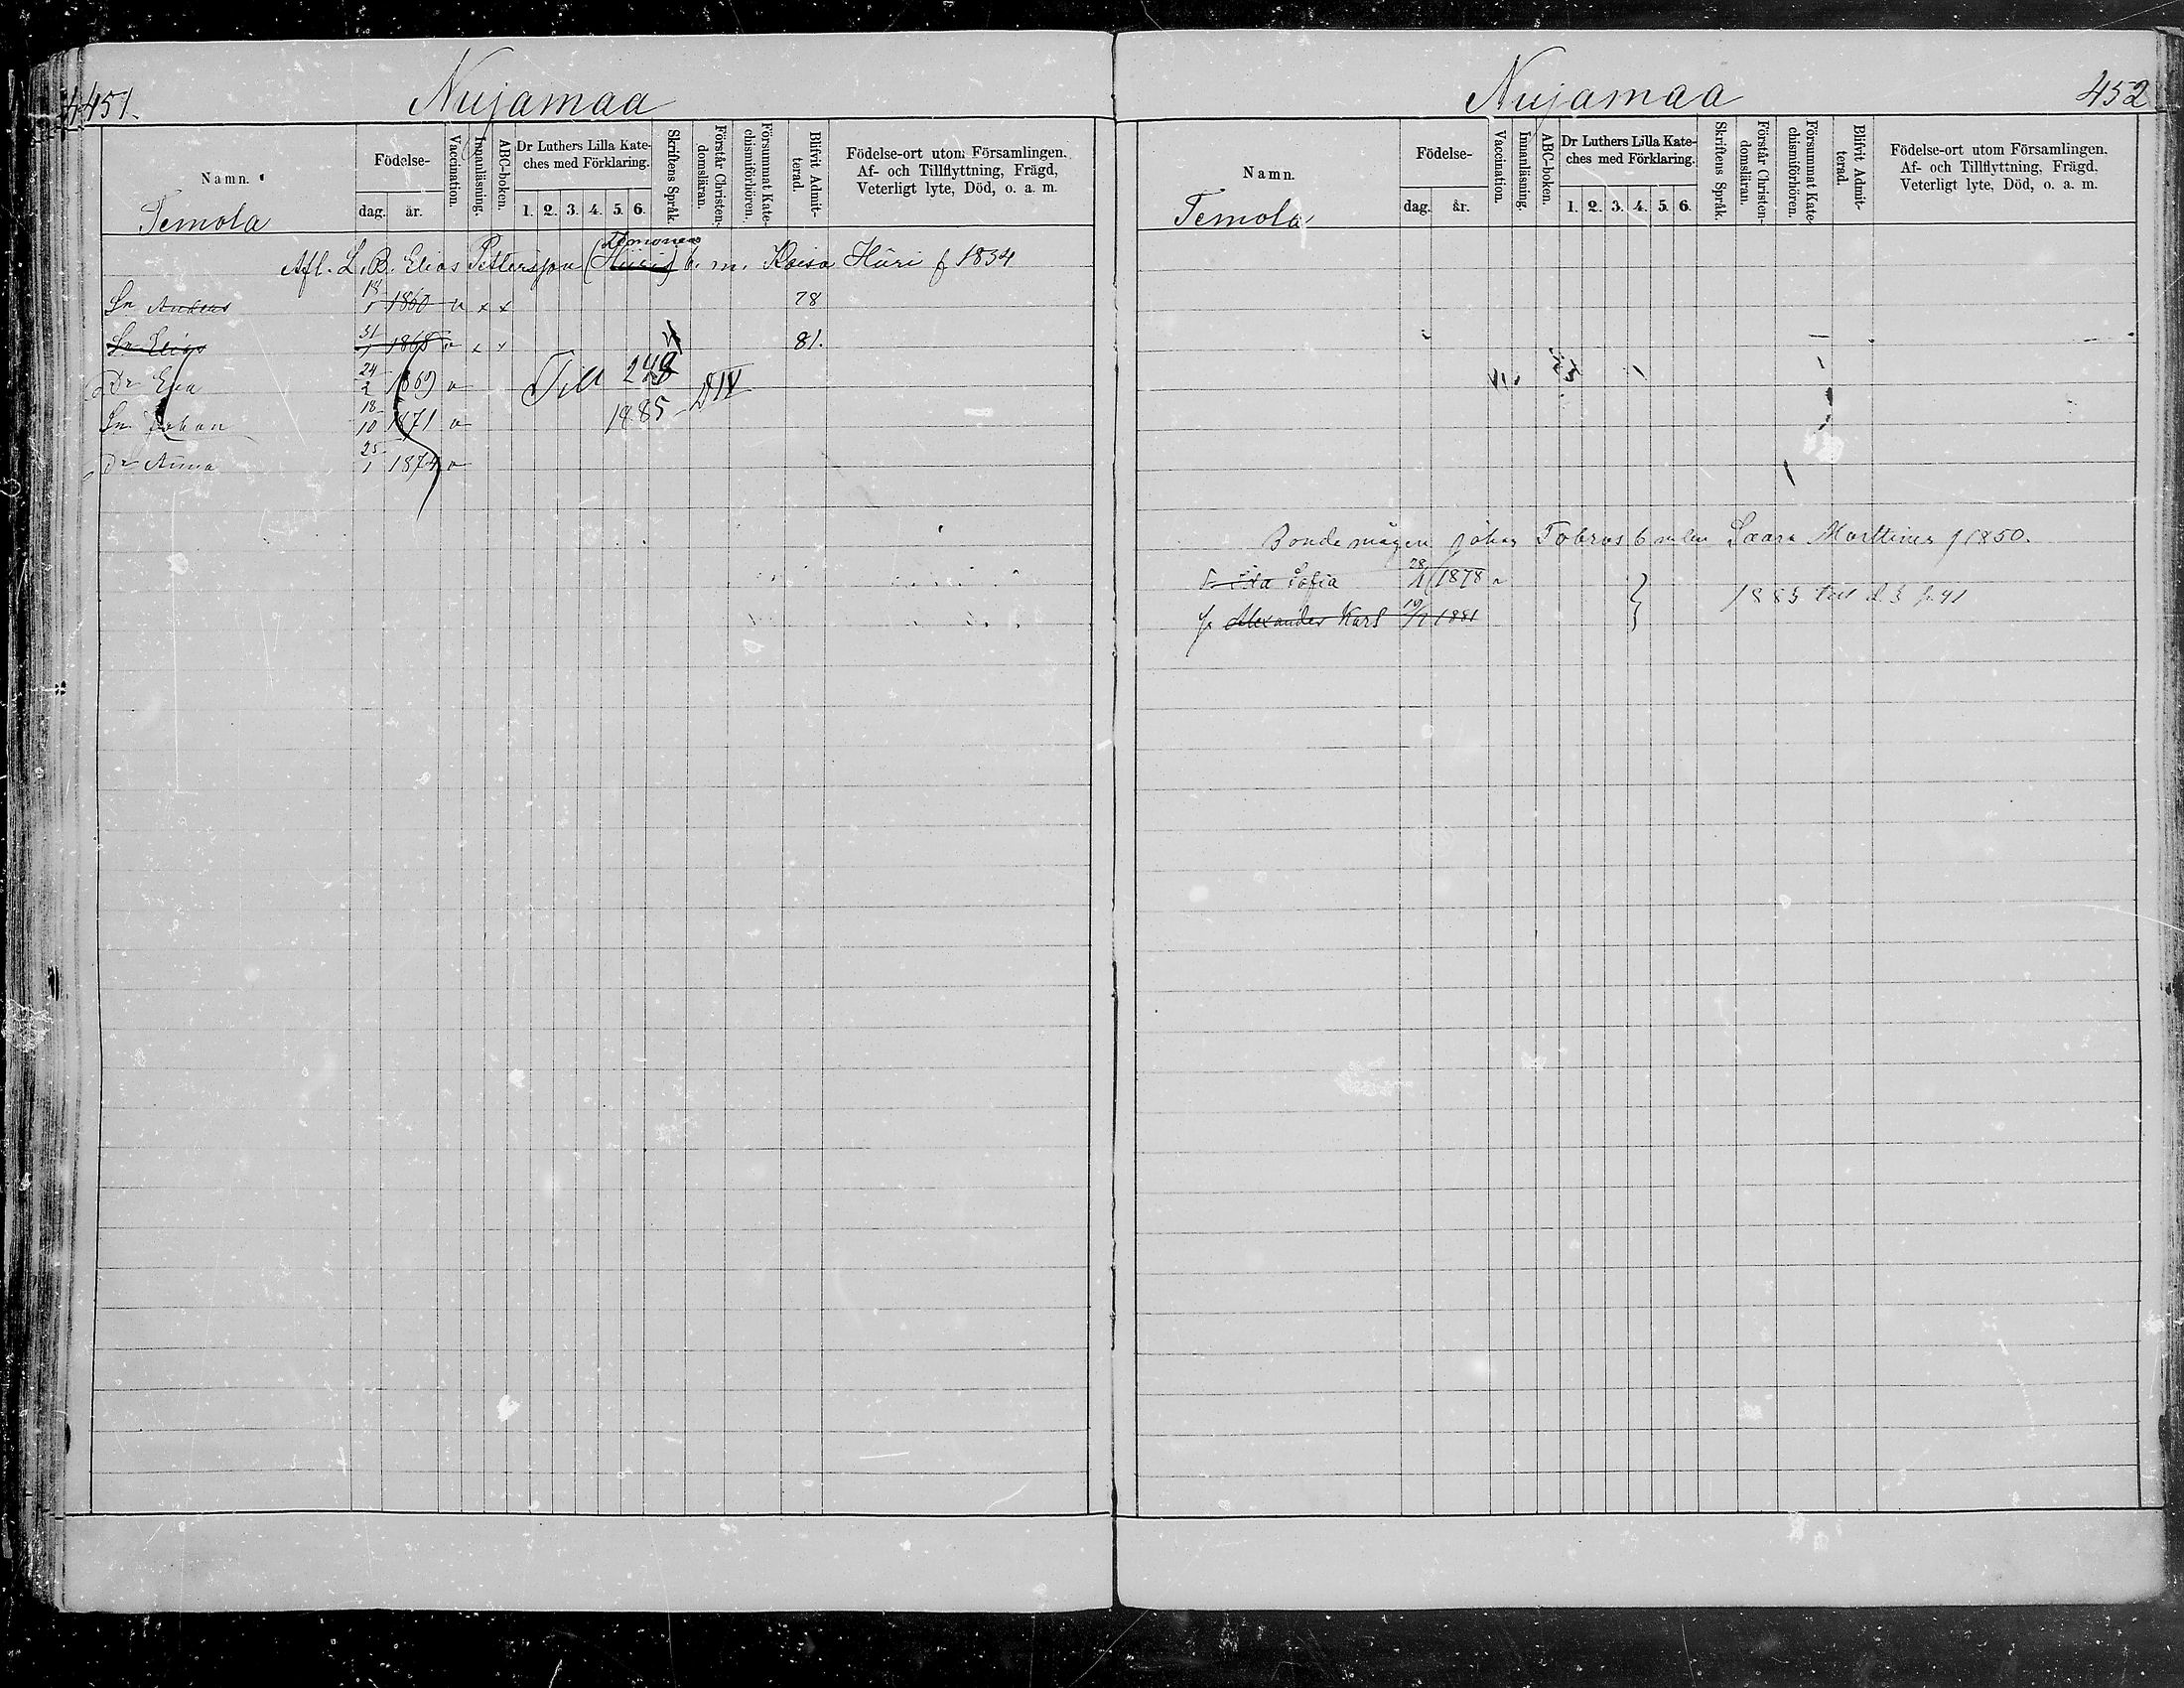 451.
Nujamaa
Namn.
Födelse-
dag.
år.
Vaccination.
Innanläsning.
ABC-boken.
Dr Luthers Lilla Kate-
ches med Förklaring.
1. 2. 3. 4. 5. 6.
Skriftens Språk.
Förstår Christen-
domsläran.
Försummat Kate-
chismiförhören.
Blifvit Admit-
terad.
Födelse-ort utom Församlingen.
Af- och Tillflyttning, Frägd,
Veterligt lyte, Död, o. a. m.
Temola
Afl. L. B. Elias Pettersson (Hüri) b. m. Kaisa Hüri f 1834
Sn Anders 18/1 1860 v x x 78
Sn Elias 31/1 1865 v x x 81.
Dr Eva 24/2 1869 v Till 248
Sn Johan 18/10 1871 v 1885
Dr Anna 25/1 1874 v
Nujamaa
452
Namn.
Födelse-
dag.
år.
Vaccination.
Innanläsning.
ABC-boken.
Dr Luthers Lilla Kate-
ches med Förklaring.
1. 2. 3. 4. 5. 6.
Skriftens Språk.
Förstår Christen-
domsläran.
Försummat Kate-
chismiförhören.
Blifvit Admit-
terad.
Födelse-ort utom Församlingen.
Af- och Tillflyttning, Frägd,
Veterligt lyte, Död, o. a. m.
Temola
Bondemågen Johan Tobias Saara Marttinen f 1850.
Sofia 1878
Alexander Karl 1881
1885 till d. 3 p. 41